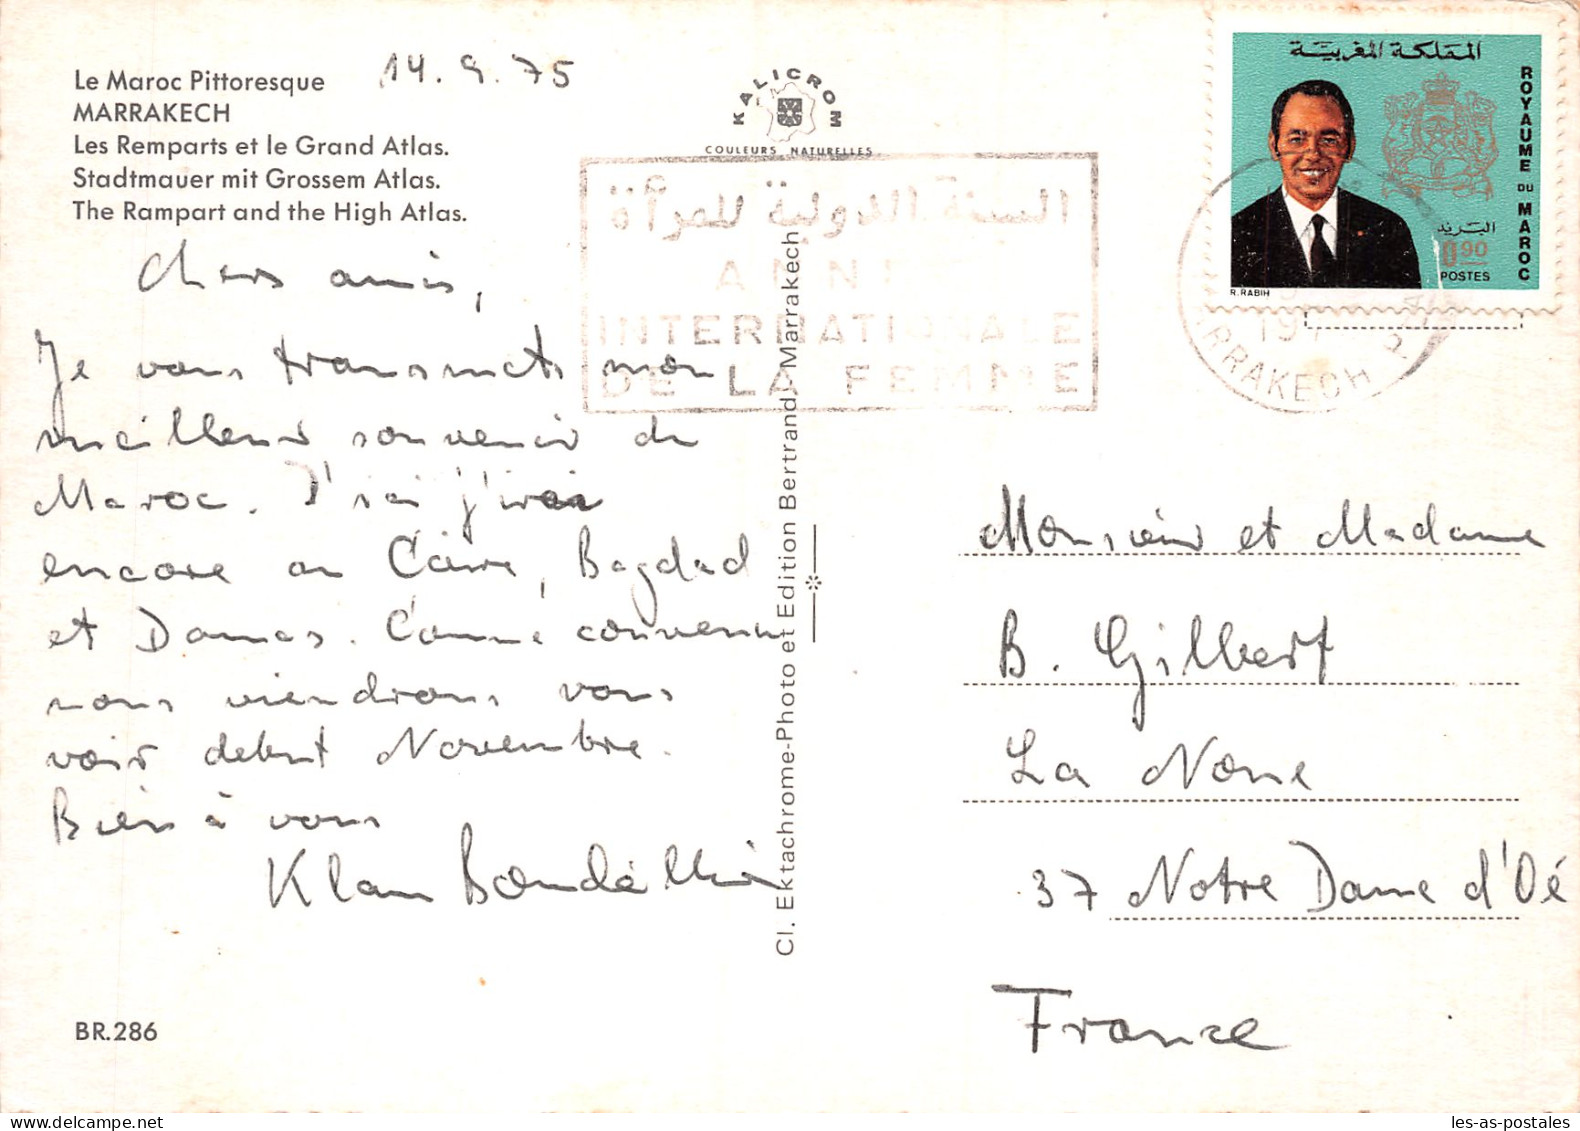 Le Maroc Pittoresque
MARRAKECH
Les Remparts et le Grand Atlas.
Stadtmauer mit Grossem Atlas.
The Rampart and the High Atlas.
14.9.75
KALICROM
COULEURS NATURELLES
السنة الدولية للمرأة
ANN
INTERNATIONALE
DE LA FEMME
المملكة المغربية
ROYAUME DU MAROC
البريد
0.90
POSTES
R. RABIH
19
RRAKECH
Chers amis,
Je vous transmets mon
meilleur souvenir du
Maroc. D'ici j'irai
encore au Caire, Bagdad
et Damas. Comme convenu
nous viendrons vous
voir debut Novembre.
Bien à vous
Cl. Ektachrome-Photo et Edition Bertrand, Marrakech
Monsieur et Madame
B. Gilbert
La Noue
37 Notre Dame d'Oé
France
BR.286
les-as-postales